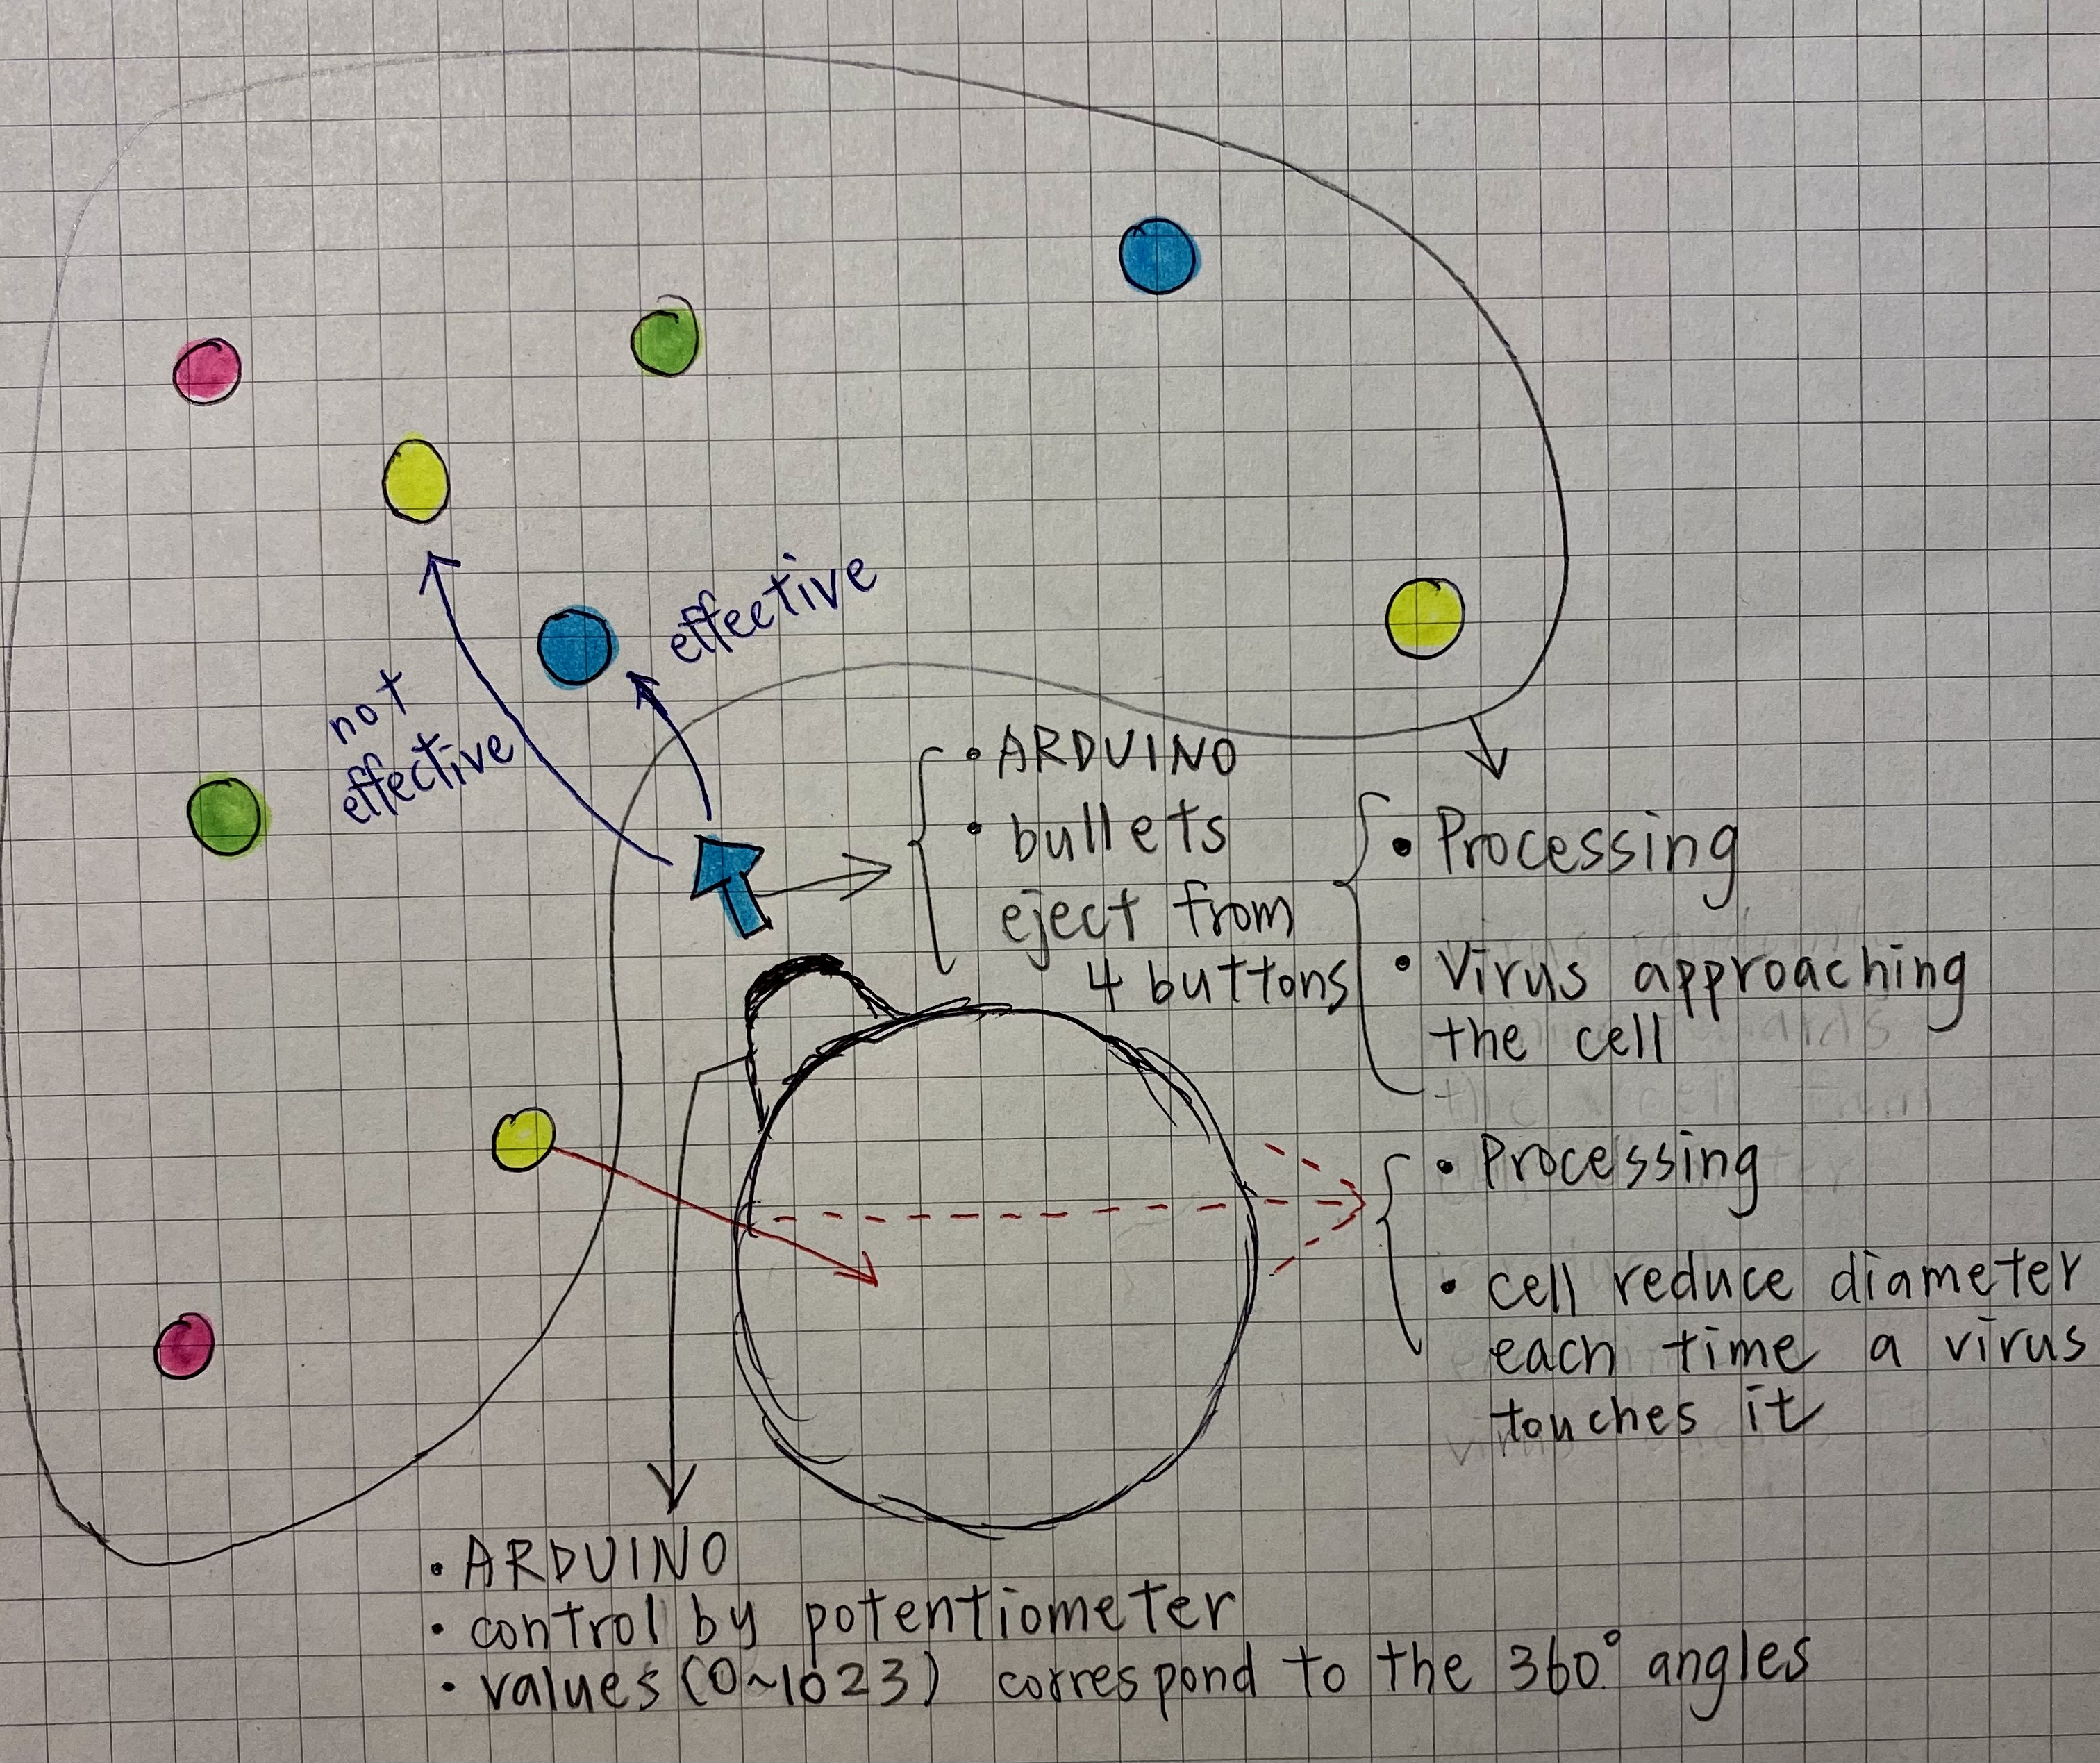 effective
not
effective
• ARDUINO
• bullets
eject from
4 buttons
• Processing
• Virus approaching
the cell
• Processing
• cell reduce diameter
each time a virus
touches it
• ARDUINO
• control by potentiometer
• values (0~1023) correspond to the 360° angles